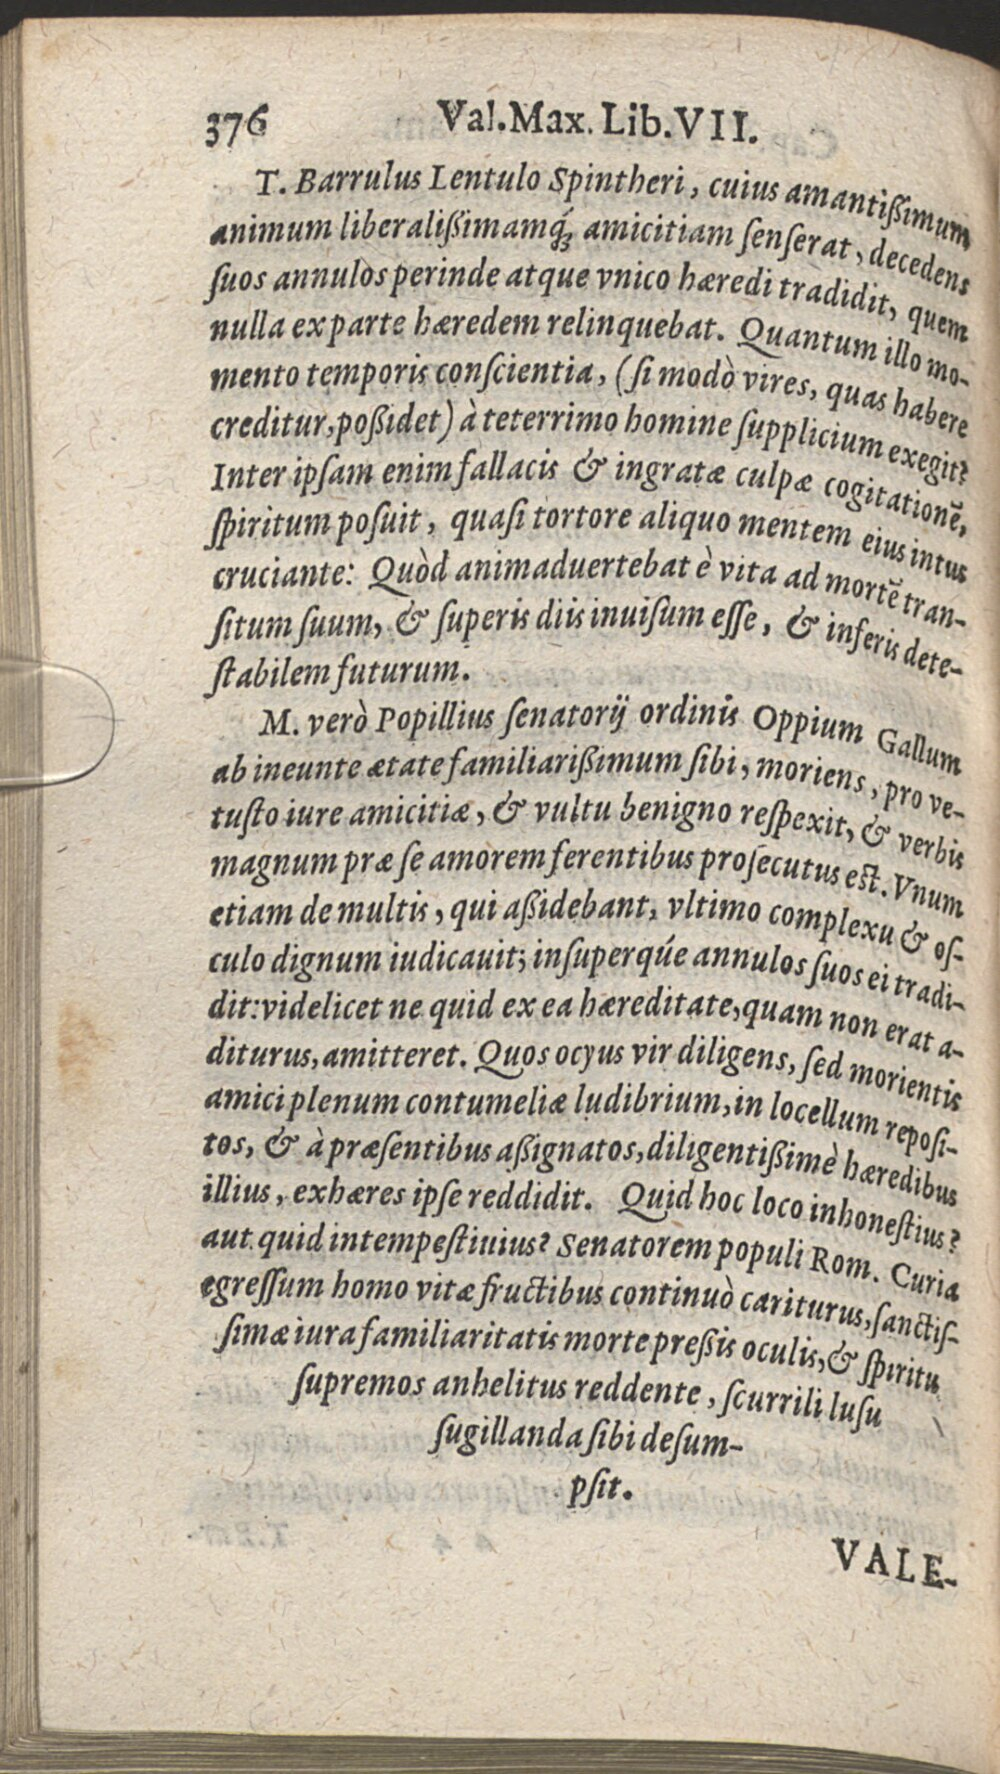 376 Val.Max. Lib.VII.
T. Barrulus Lentulo Spintheri, cuius amantißimum
animum liberalißimamq́; amicitiam ſenſerat, decedens
ſuos annulos perinde atque vnico hæredi tradidit, quem
nulla ex parte hæredem relinquebat. Quantum illo mo-
mento temporis conſcientia, (ſi modò vires, quas habere
creditur, poßidet) à teterrimo homine ſupplicium exegit?
Inter ipſam enim fallacis & ingratæ culpæ cogitationē,
ſpiritum poſuit, quaſi tortore aliquo mentem eius intus
cruciante: Quòd animaduertebat è vita ad mortē tran-
ſitum ſuum, & ſuperis diis inuiſum eſſe, & inferis dete-
ſtabilem futurum.
M. verò Popillius ſenatorij ordinis Oppium Gallum
ab ineunte ætate familiarißimum ſibi, moriens, pro ve-
tuſto iure amicitiæ, & vultu benigno reſpexit, & verbis
magnum præ ſe amorem ferentibus proſecutus eſt. Vnum
etiam de multis, qui aßidebant, vltimo complexu & oſ-
culo dignum iudicauit; inſuperq́ue annulos ſuos ei tradi-
dit: videlicet ne quid ex ea hæreditate, quam non erat a-
diturus, amitteret. Quos ocyus vir diligens, ſed morientis
amici plenum contumeliæ ludibrium, in locellum repoſi-
tos, & à præſentibus aßignatos, diligentißimè hæredibus
illius, exhæres ipſe reddidit. Quid hoc loco inhoneſtius?
aut quid intempeſtiuius? Senatorem populi Rom. Curia
egreſſum homo vitæ fructibus continuò cariturus, ſanctiſ-
ſimæ iura familiaritatis morte preßis oculis, & ſpiritu
ſupremos anhelitus reddente, ſcurrili luſu
ſugillanda ſibi deſum-
pſit.
VALE-